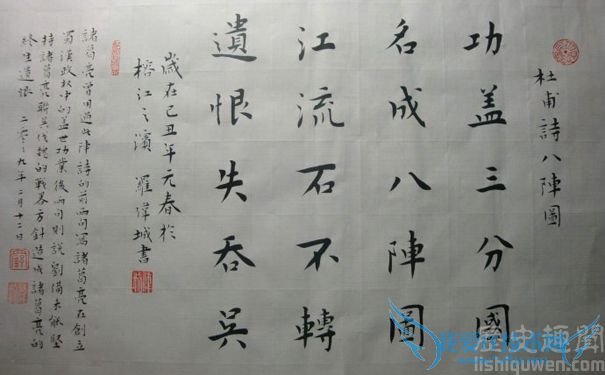 杜甫詩八陣圖
功盖三分國
名成八陣圖
江流石不轉
遺恨失吞吳
歲在己丑年元春於
榕江之濱 羅偉城書
諸葛亮曾用過此陣詩的前兩句寫諸葛亮在創立
蜀漢政权中的盖世功業後兩句則說劉備未能堅
持諸葛亮聯吳伐魏的戰畧方針造成諸葛亮的
終生遺恨 二零零九年二月十二日
史趣聞
lishiquwen.com